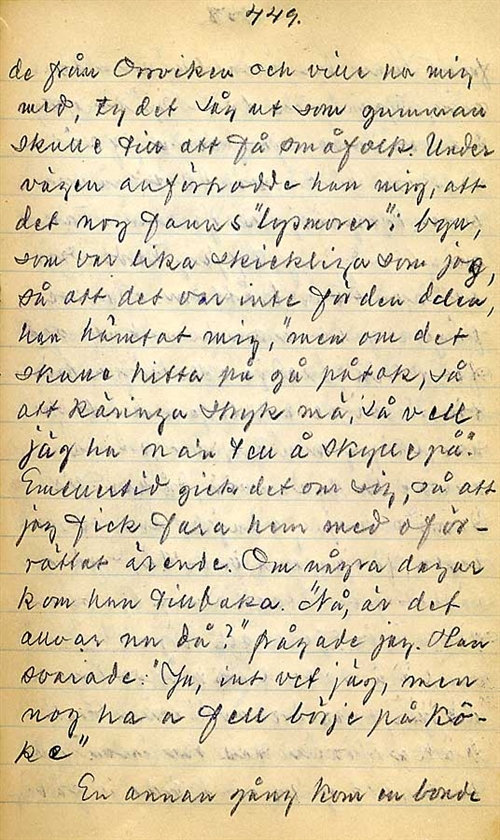 449.
de från Orrviken och ville ha mig
med, ty det såg ut som gumman
skulle till att få småfolk. Under
vägen anförtrodde han mig, att
det nog fanns "lepmorer" i byn,
som var lika skickliga som jag,
så att det var inte för den delen,
han hämtat mig, "men om det
skulle hitta på gå påtok, så
att käringa stryk må, så vell
jäg ha na'n tell å skylle på."
Emellertid gick det om sig, så att
jag fick fara hem med oför-
rättat ärende. Om några dagar
kom han tillbaka. "Nå, är det
allvar nu då?" frågade jag. Han
svarade: "Ja, int vet jäg, men
nog ha a fell börje på kö-
ke"
En annan gång kom en bonde